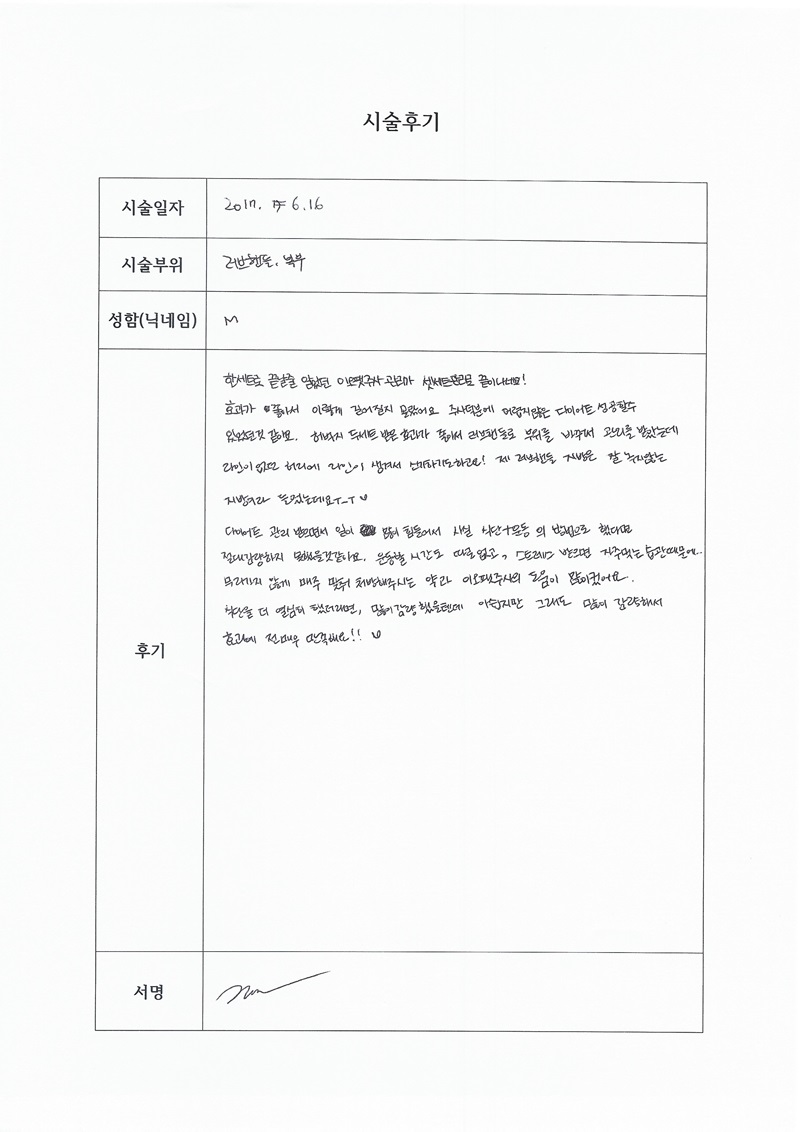 시술후기
시술일자
2017. 6.16
시술부위
러브핸들, 복부
성함(닉네임)
M
후기
한세트로 끝날줄 알았던 이오팻주사 관리가 셋세트관리로 끝이나네요!
효과가 좋아서 이렇게 길어질지 몰랐어요 주사덕분에 어렵지않은 다이어트 성공할수
있었던것 같아요. 허벅지 두세트 받은 효과가 좋아서 러브핸들로 부위를 바꾸며 관리를 받았는데
라인이 없던 허리에 라인이 생겨서 신기하기도하고요! 제 러브핸들 지방은 잘 녹지않는
지방이라 들었는데요ㅜ_ㅜ
다이어트 관리 받으면서 일이 많이 힘들어서 사실 식단+운동 의 방법으로 했다면
절대감량하지 못했을것같아요. 운동할 시간도 따로없고, 스트레스 받으면 자주먹는 습관때문에..
무리가지 않게 매주 맞춰 처방해주시는 약과 이오팻주사의 도움이 많이컸어요.
식단을 더 열심히 했더라면, 많이감량 했을텐데 아쉽지만 그래도 많이 감량해서
효과에 전 매우 만족해요!!
서명